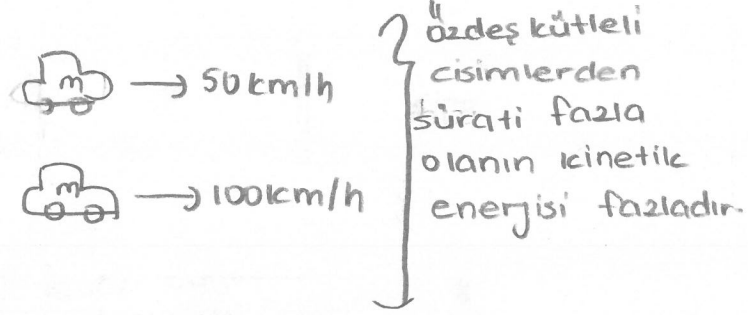 m → 50 km/h
m → 100 km/h
Özdeş kütleli
cisimlerden
sürati fazla
olanın kinetik
enerjisi fazladır.